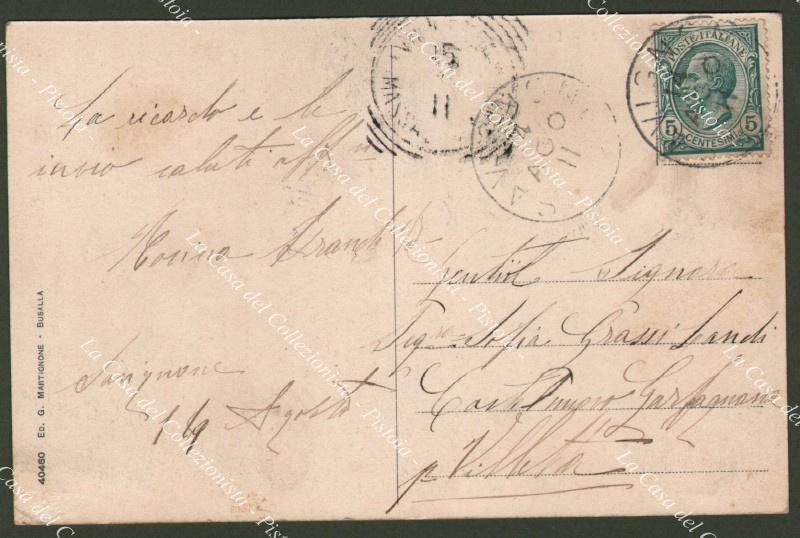 La ricordo e le
invio saluti aff.
Savignone
Agosto
Gentil Signora
Sig.ra Sofia Grassi Landi
Castelnuovo Garfagnana
p Villetta
POSTE ITALIANE
5 5
CENTESIMI
SAVIGNONE
AGO
11
5
11
40460 ED. G. MARTIGNONE - BUSALLA
La Casa del Collezionista - Pistoia